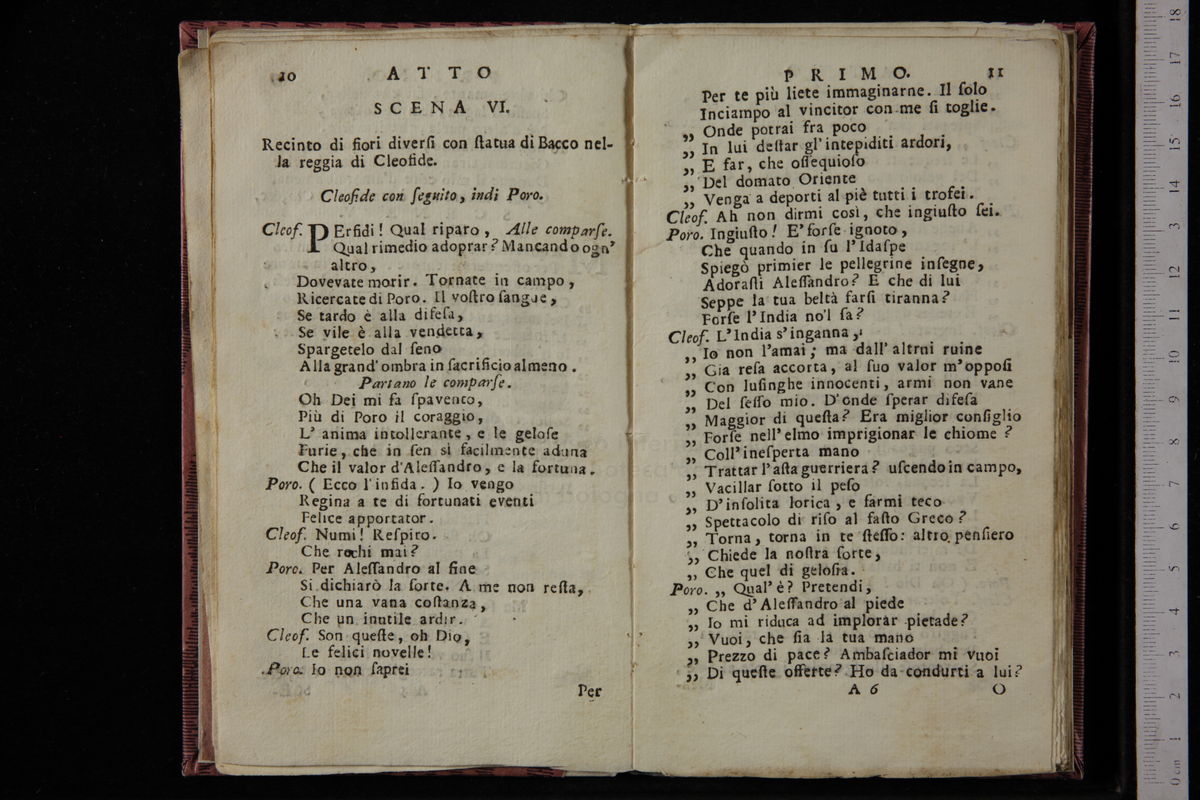 10 ATTO
SCENA VI.
Recinto di fiori diverſi con ſtatua di Bacco nel-
la reggia di Cleofide.
Cleofide con ſeguito, indi Poro.
Cleof. PErfidi! Qual riparo, Alle comparſe.
Qual rimedio adoprar? Mancando ogn'
altro,
Dovevate morir. Tornate in campo,
Ricercate di Poro. Il voſtro ſangue,
Se tardo è alla difeſa,
Se vile è alla vendetta,
Spargetelo dal ſeno
Alla grand' ombra in ſacrificio almeno.
Partano le comparſe.
Oh Dei mi fa ſpavento,
Più di Poro il coraggio,
L' anima intollerante, e le geloſe
Furie, che in ſen sì facilmente aduna
Che il valor d'Aleſſandro, e la fortuna.
Poro. ( Ecco l'infida. ) Io vengo
Regina a te di fortunati eventi
Felice apportator.
Cleof. Numi! Reſpiro.
Che rechi mai?
Poro. Per Aleſſandro al fine
Si dichiarò la ſorte. A me non reſta,
Che una vana coſtanza,
Che un inutile ardir.
Cleof. Son queſte, oh Dio,
Le felici novelle!
Poro. Io non ſaprei
Per
PRIMO. 11
Per te più liete immaginarne. Il ſolo
Inciampo al vincitor con me ſi toglie.
„ Onde potrai fra poco
„ In lui deſtar gl'intepiditi ardori,
„ E far, che oſſequioſo
„ Del domato Oriente
„ Venga a deporti al piè tutti i trofei.
Cleof. Ah non dirmi così, che ingiuſto ſei.
Poro. Ingiuſto! E' forſe ignoto,
Che quando in ſu l'Idaſpe
Spiegò primier le pellegrine inſegne,
Adoraſti Aleſſandro? E che di lui
Seppe la tua beltà farſi tiranna?
Forſe l'India no'l ſa?
Cleof. L'India s'inganna,
„ Io non l'amai; ma dall' altrui ruine
„ Gia reſa accorta, al ſuo valor m'oppoſi
„ Con luſinghe innocenti, armi non vane
„ Del ſeſſo mio. D'onde ſperar difeſa
„ Maggior di queſta? Era miglior conſiglio
„ Forſe nell'elmo imprigionar le chiome?
„ Coll'ineſperta mano
„ Trattar l'aſta guerriera? uſcendo in campo,
„ Vacillar ſotto il peſo
„ D'inſolita lorica, e farmi teco
„ Spettacolo di riſo al faſto Greco?
„ Torna, torna in te ſteſſo: altro penſiero
„ Chiede la noſtra ſorte,
„ Che quel di geloſia.
Poro. „ Qual'è? Pretendi,
„ Che d'Aleſſandro al piede
„ Io mi riduca ad implorar pietade?
„ Vuoi, che ſia la tua mano
„ Prezzo di pace? Ambaſciador mi vuoi
„ Di queſte offerte? Ho da condurti a lui?
A 6 O